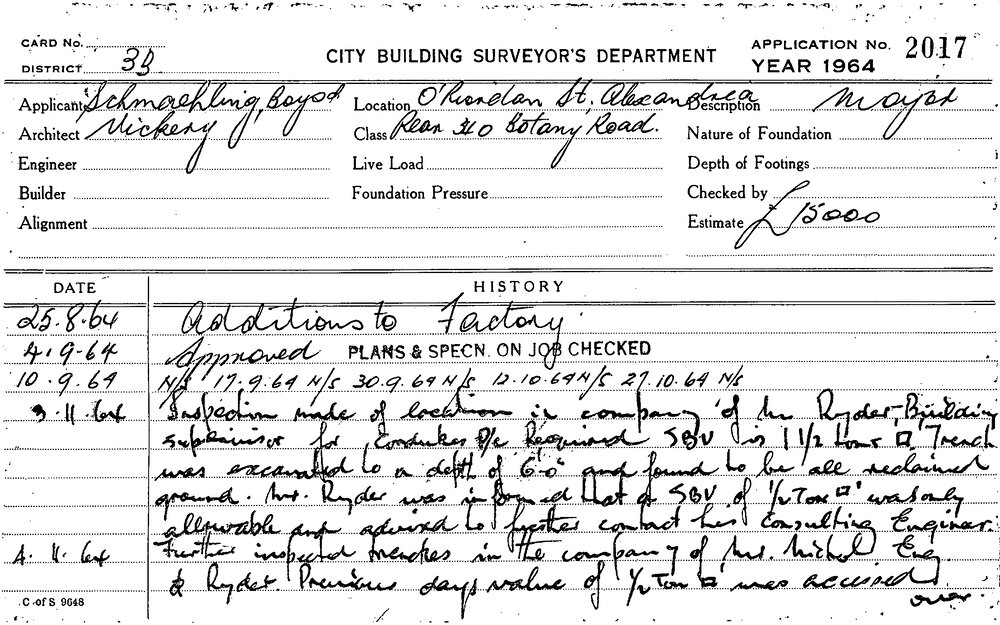 CARD No.
DISTRICT 3B
CITY BUILDING SURVEYOR'S DEPARTMENT
APPLICATION No. 2017
YEAR 1964
Applicant Schmaehling, Boyod
Location O'Riordan St. Alexandrea
Description Mayor
Architect Vickery
Class Rear 310 Botany Road.
Nature of Foundation
Engineer
Live Load
Depth of Footings
Builder
Foundation Pressure
Checked by
Alignment
Estimate £15000
DATE HISTORY
25.8.64 Additions to Factory.
4.9.64 Approved PLANS & SPECN. ON JOB CHECKED
10.9.64 N/S 17.9.64 N/S 30.9.64 N/S 12.10.64 N/S 27.10.64 N/S
3.11.64 Inspection made of location in company of Mr Ryder, Building
Supervisor for P/L Required SBV is 1 1/2 tons □' Trench
was excavated to a depth of 6'0" and found to be all reclaimed
ground. Mr. Ryder was informed that a SBV of 1/2 Ton □' was only
allowable and advised to further contact his Consulting Engineer.
4.11.64 Further inspected trenches in the company of Mr. Nichol Eng
& Ryder. Previous days value of 1/2 Ton □' was
over.
C of S 9648